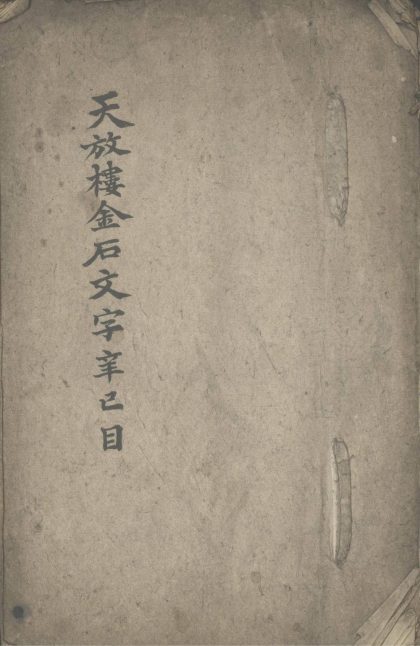 天放樓金石文字辛巳目